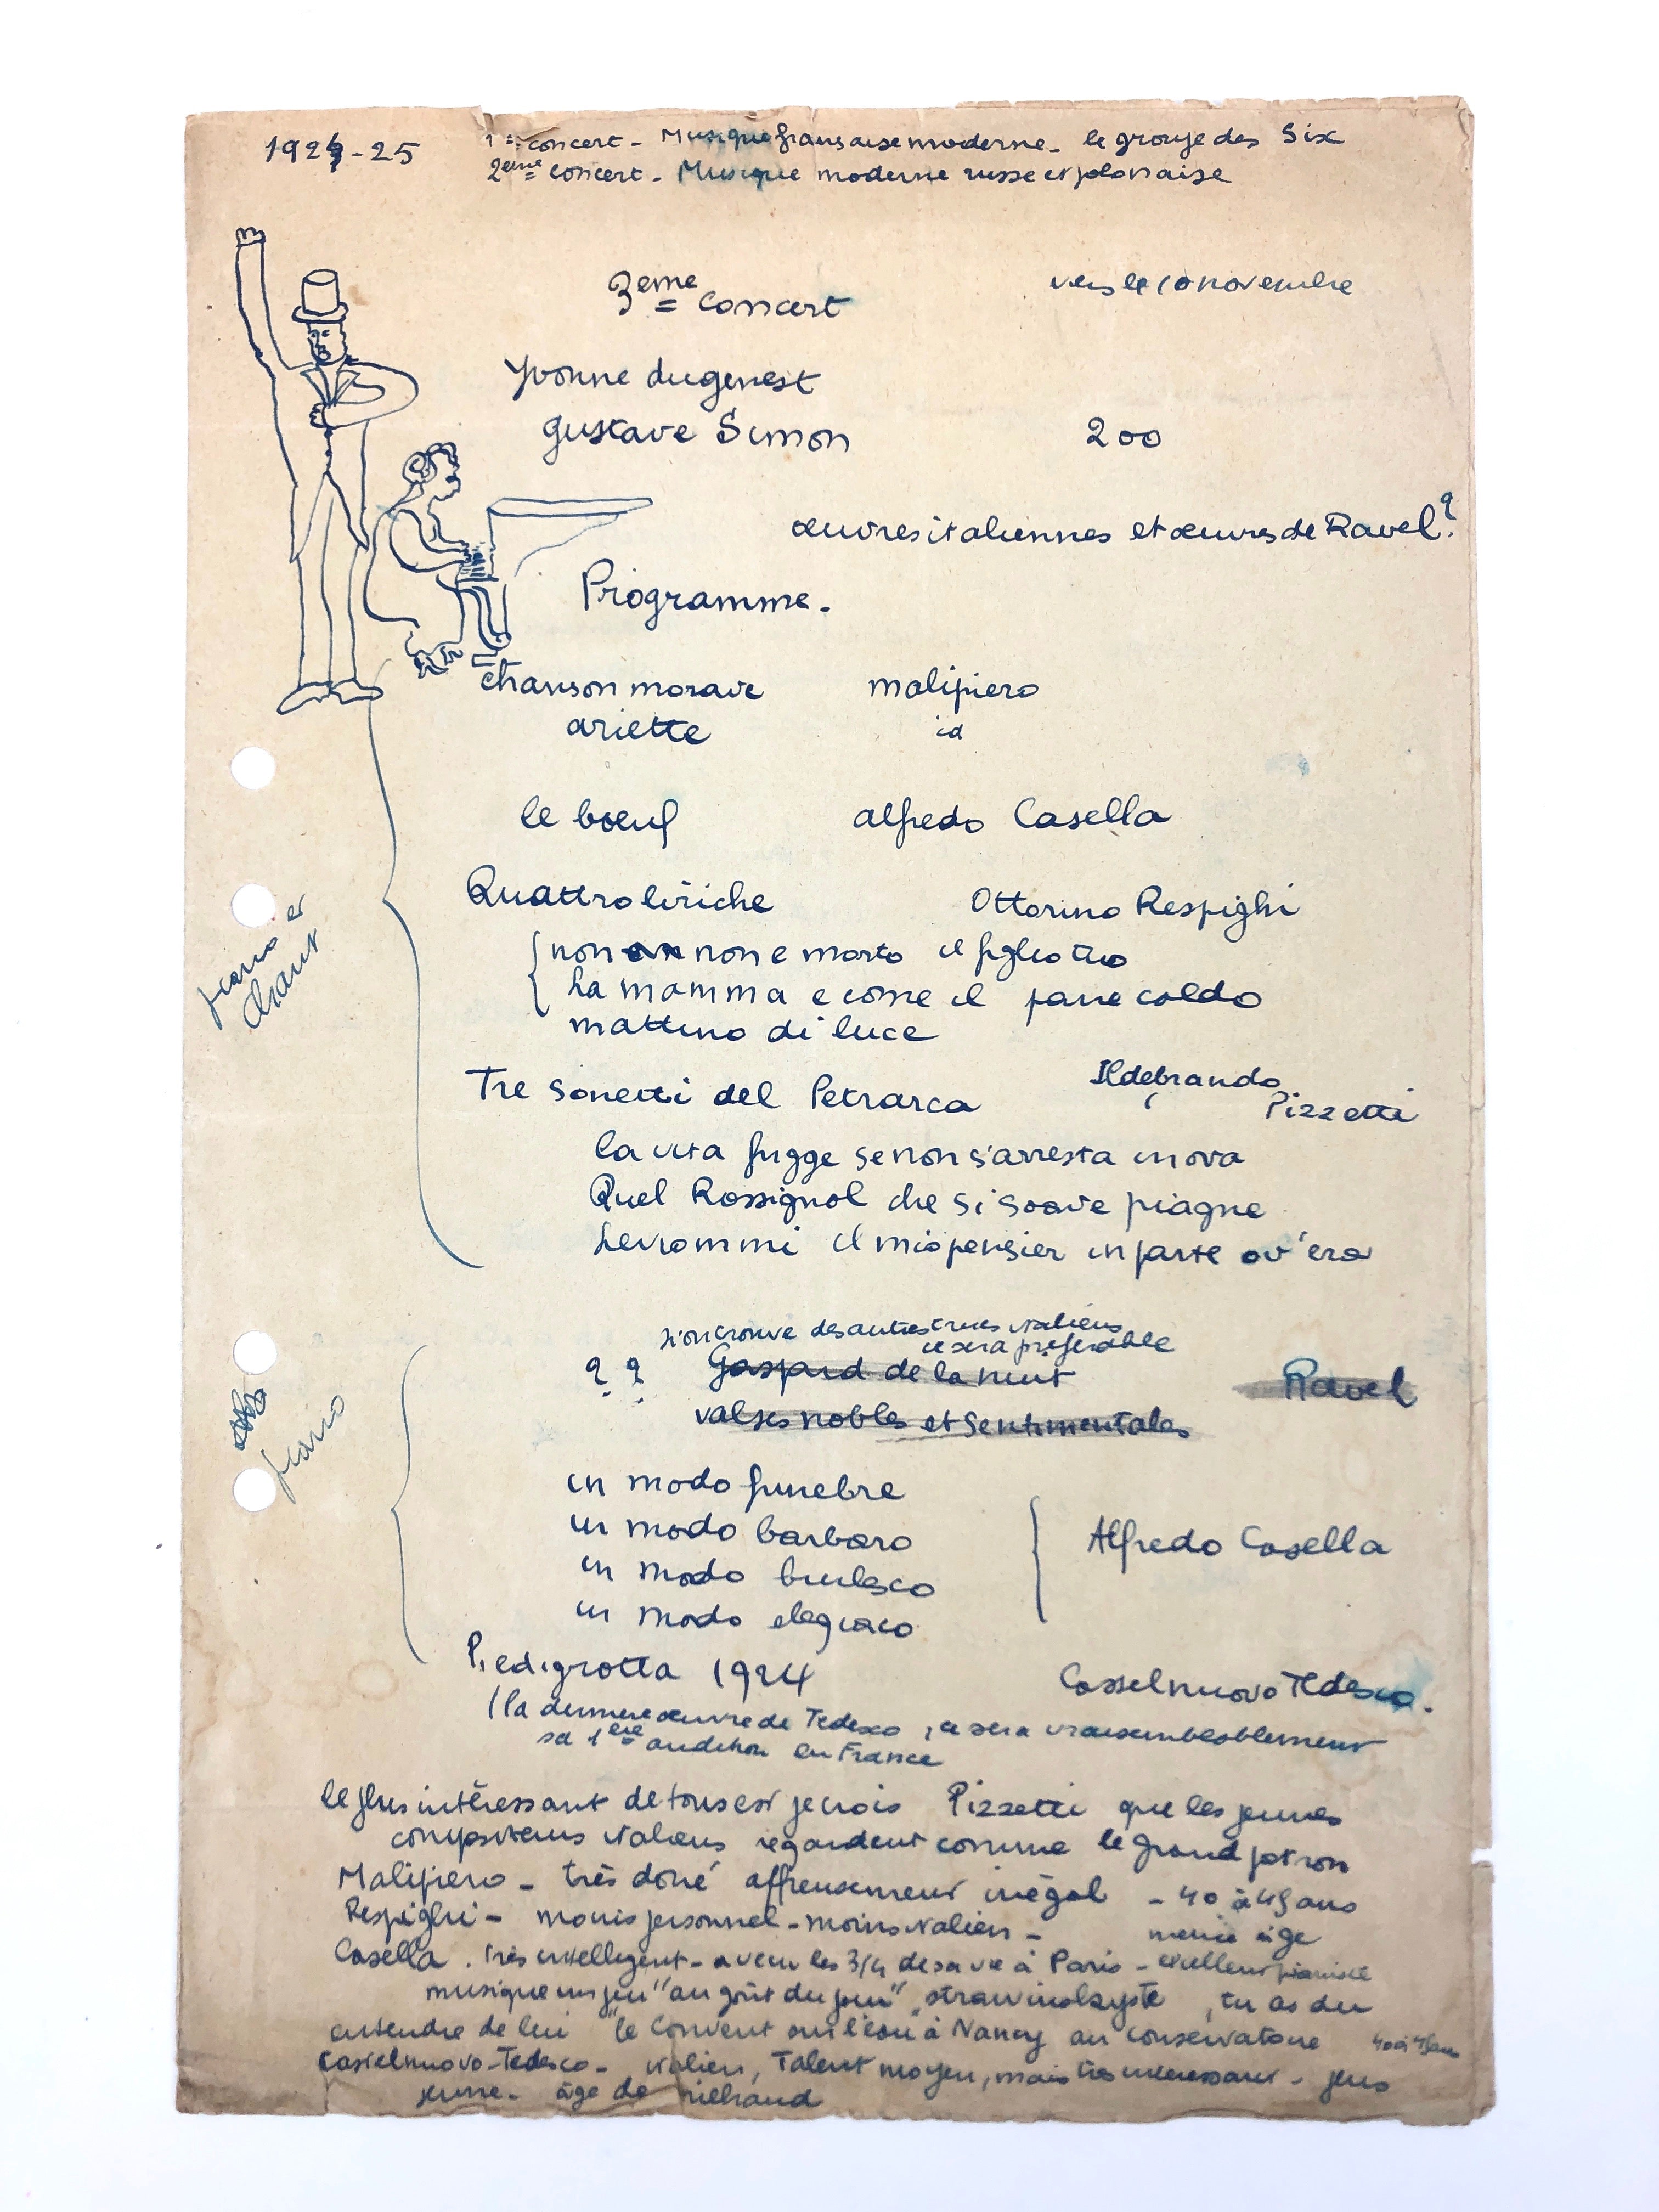 1924-25
1er concert - Musique française moderne - le groupe des Six
2eme concert - Musique moderne russe et polonaise
3eme concert
vers le 10 novembre
Yvonne dugenest
gustave Simon 200
œuvres italiennes et œuvres de Ravel ?
Programme -
Chanson morave malipiero
ariette id
le bœuf alfredo Casella
Quattro liriche Ottorino Respighi
non non e morto il figlio tuo
La mamma e come il pane caldo
mattino di luce
Tre Sonetti del Petrarca Ildebrando Pizzetti
la vita fugge se non s'arresta un ora
Quel Rossignol che si soave piagne
Levrommi il mio pensier in parte ov'era
piano et
chant
si on trouve des autres trucs italiens
ce sera préférable
? ? Gaspard de la nuit Ravel
valses nobles et Sentimentales
piano
in modo funebre
in modo barbaro
in modo burlesco
in modo elegiaco
Alfredo Casella
Piedigrotta 1924 Casselnuovo Tedesco.
(la derniere œuvre de Tedesco, ce sera vraisemblablement
sa 1ere audition en France
le plus intéressant de tous est je crois Pizzetti que les jeunes
compositeurs italiens regardent comme le grand patron
Malipiero - très doné affreusement inégal - 40 à 45 ans
Respighi - moins personnel - moins italien - meme age
Casella. très intelligent - a vecu les 3/4 de sa vie à Paris - excellent pianiste
musique un peu "au goût du jour", strawinskyste, tu as du
entendre de lui "le Couvent sur l'eau" à Nancy au conservatoire 40 à 45 ans
Castelnuovo-Tedesco - italien, Talent moyen, mais très interessant - plus
jeune - âge de Milhaud